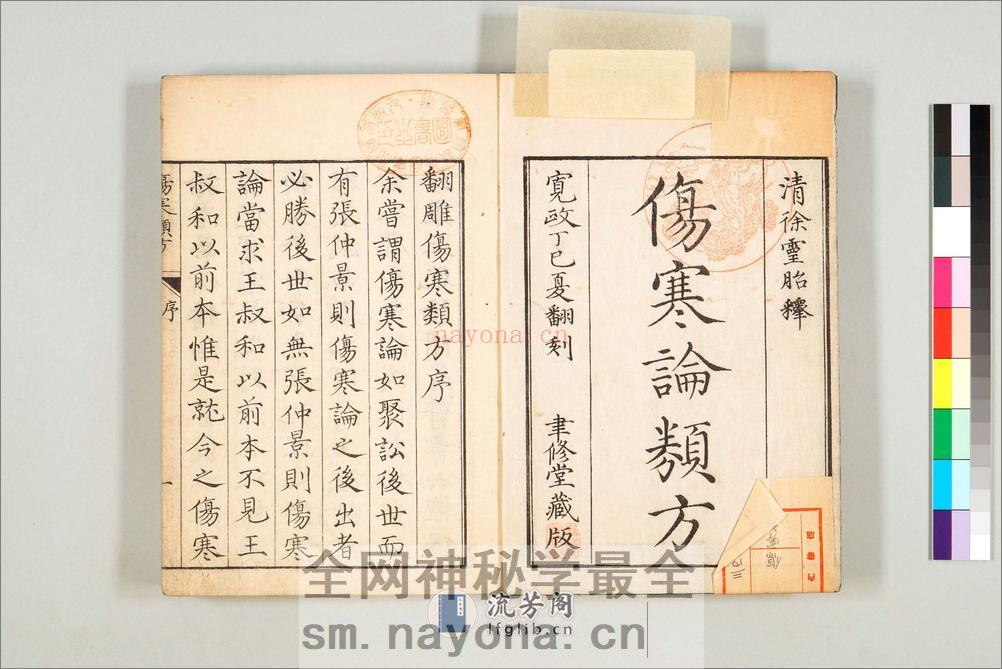 清徐靈胎釋
傷寒論類方
寛政丁巳夏翻刻 聿修堂藏版
翻雕傷寒類方序
余嘗謂傷寒論如聚訟後世而
有張仲景則傷寒論之後出者
必勝後世如無張仲景則傷寒
論當求王叔和以前本不見王
叔和以前本惟是就今之傷寒
傷寒類方
序
一
nayona.cn
全网神秘学最全
流芳阁
lfglib.cn
sm.nayona.cn